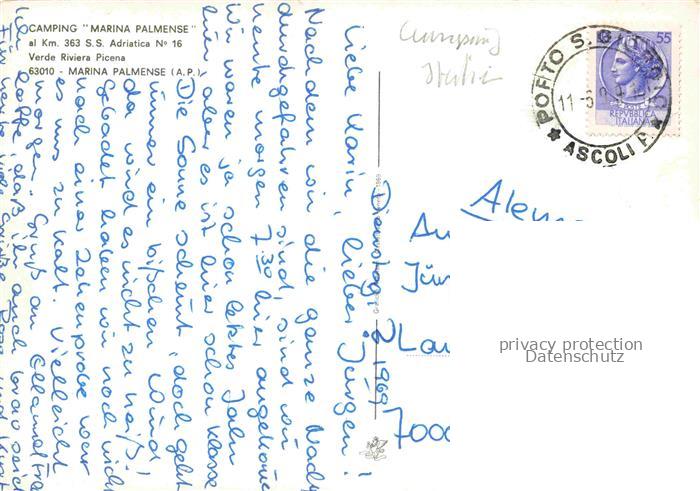 CAMPING "MARINA PALMENSE"
al Km. 363 S.S. Adriatica Nº 16
Verde Riviera Picena
63010 - MARINA PALMENSE (A.P.)
Camping
Italien
PORTO S. GIORGIO
11-6
ASCOLI P.
55
REPVBBLICA
ITALIANA
Dienstag, 1969
Liebe Karin, lieber Jürgen!
Nachdem wir die ganze Nacht
durchgefahren sind, sind wir
heute morgen 7.30 hier angekommen
Wir waren ja schon letztes Jahr
hier aber es ist hier schon klasse
Die Sonne scheint, doch geht
immer ein bißchen Wind,
da wird es nicht zu heiß!
Gebadet haben wir noch nicht
nach einer Zehenprobe war
es uns zu kalt. Vielleicht
morgen. Gruß an
Ich hoffe, daß ihr auch brav seid
700
privacy protection
Datenschutz